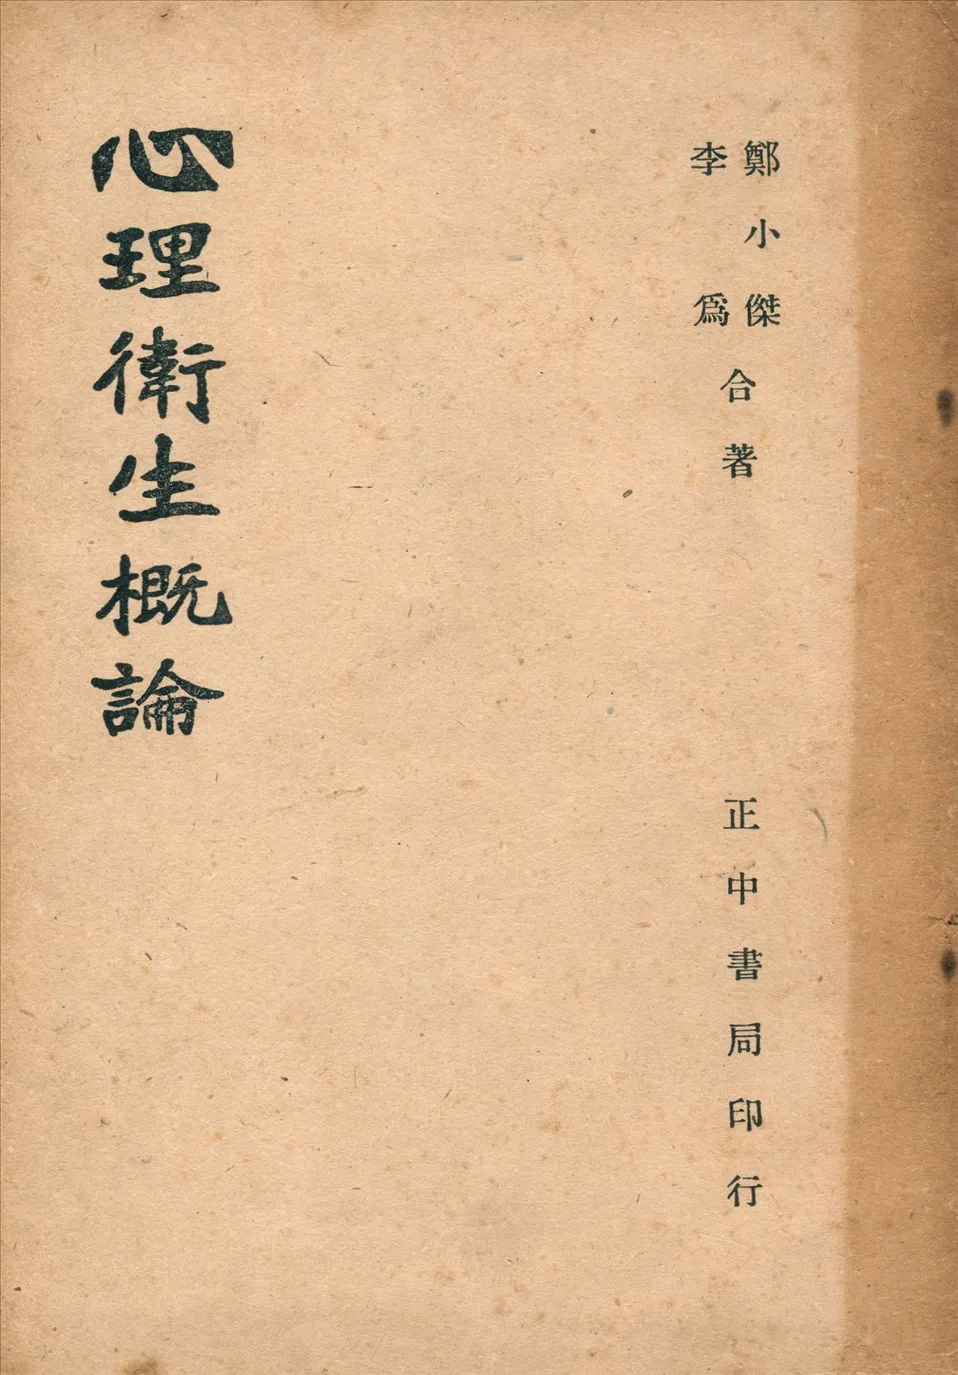 鄭小傑
李爲
合著
正中書局印行
心理衛生概論